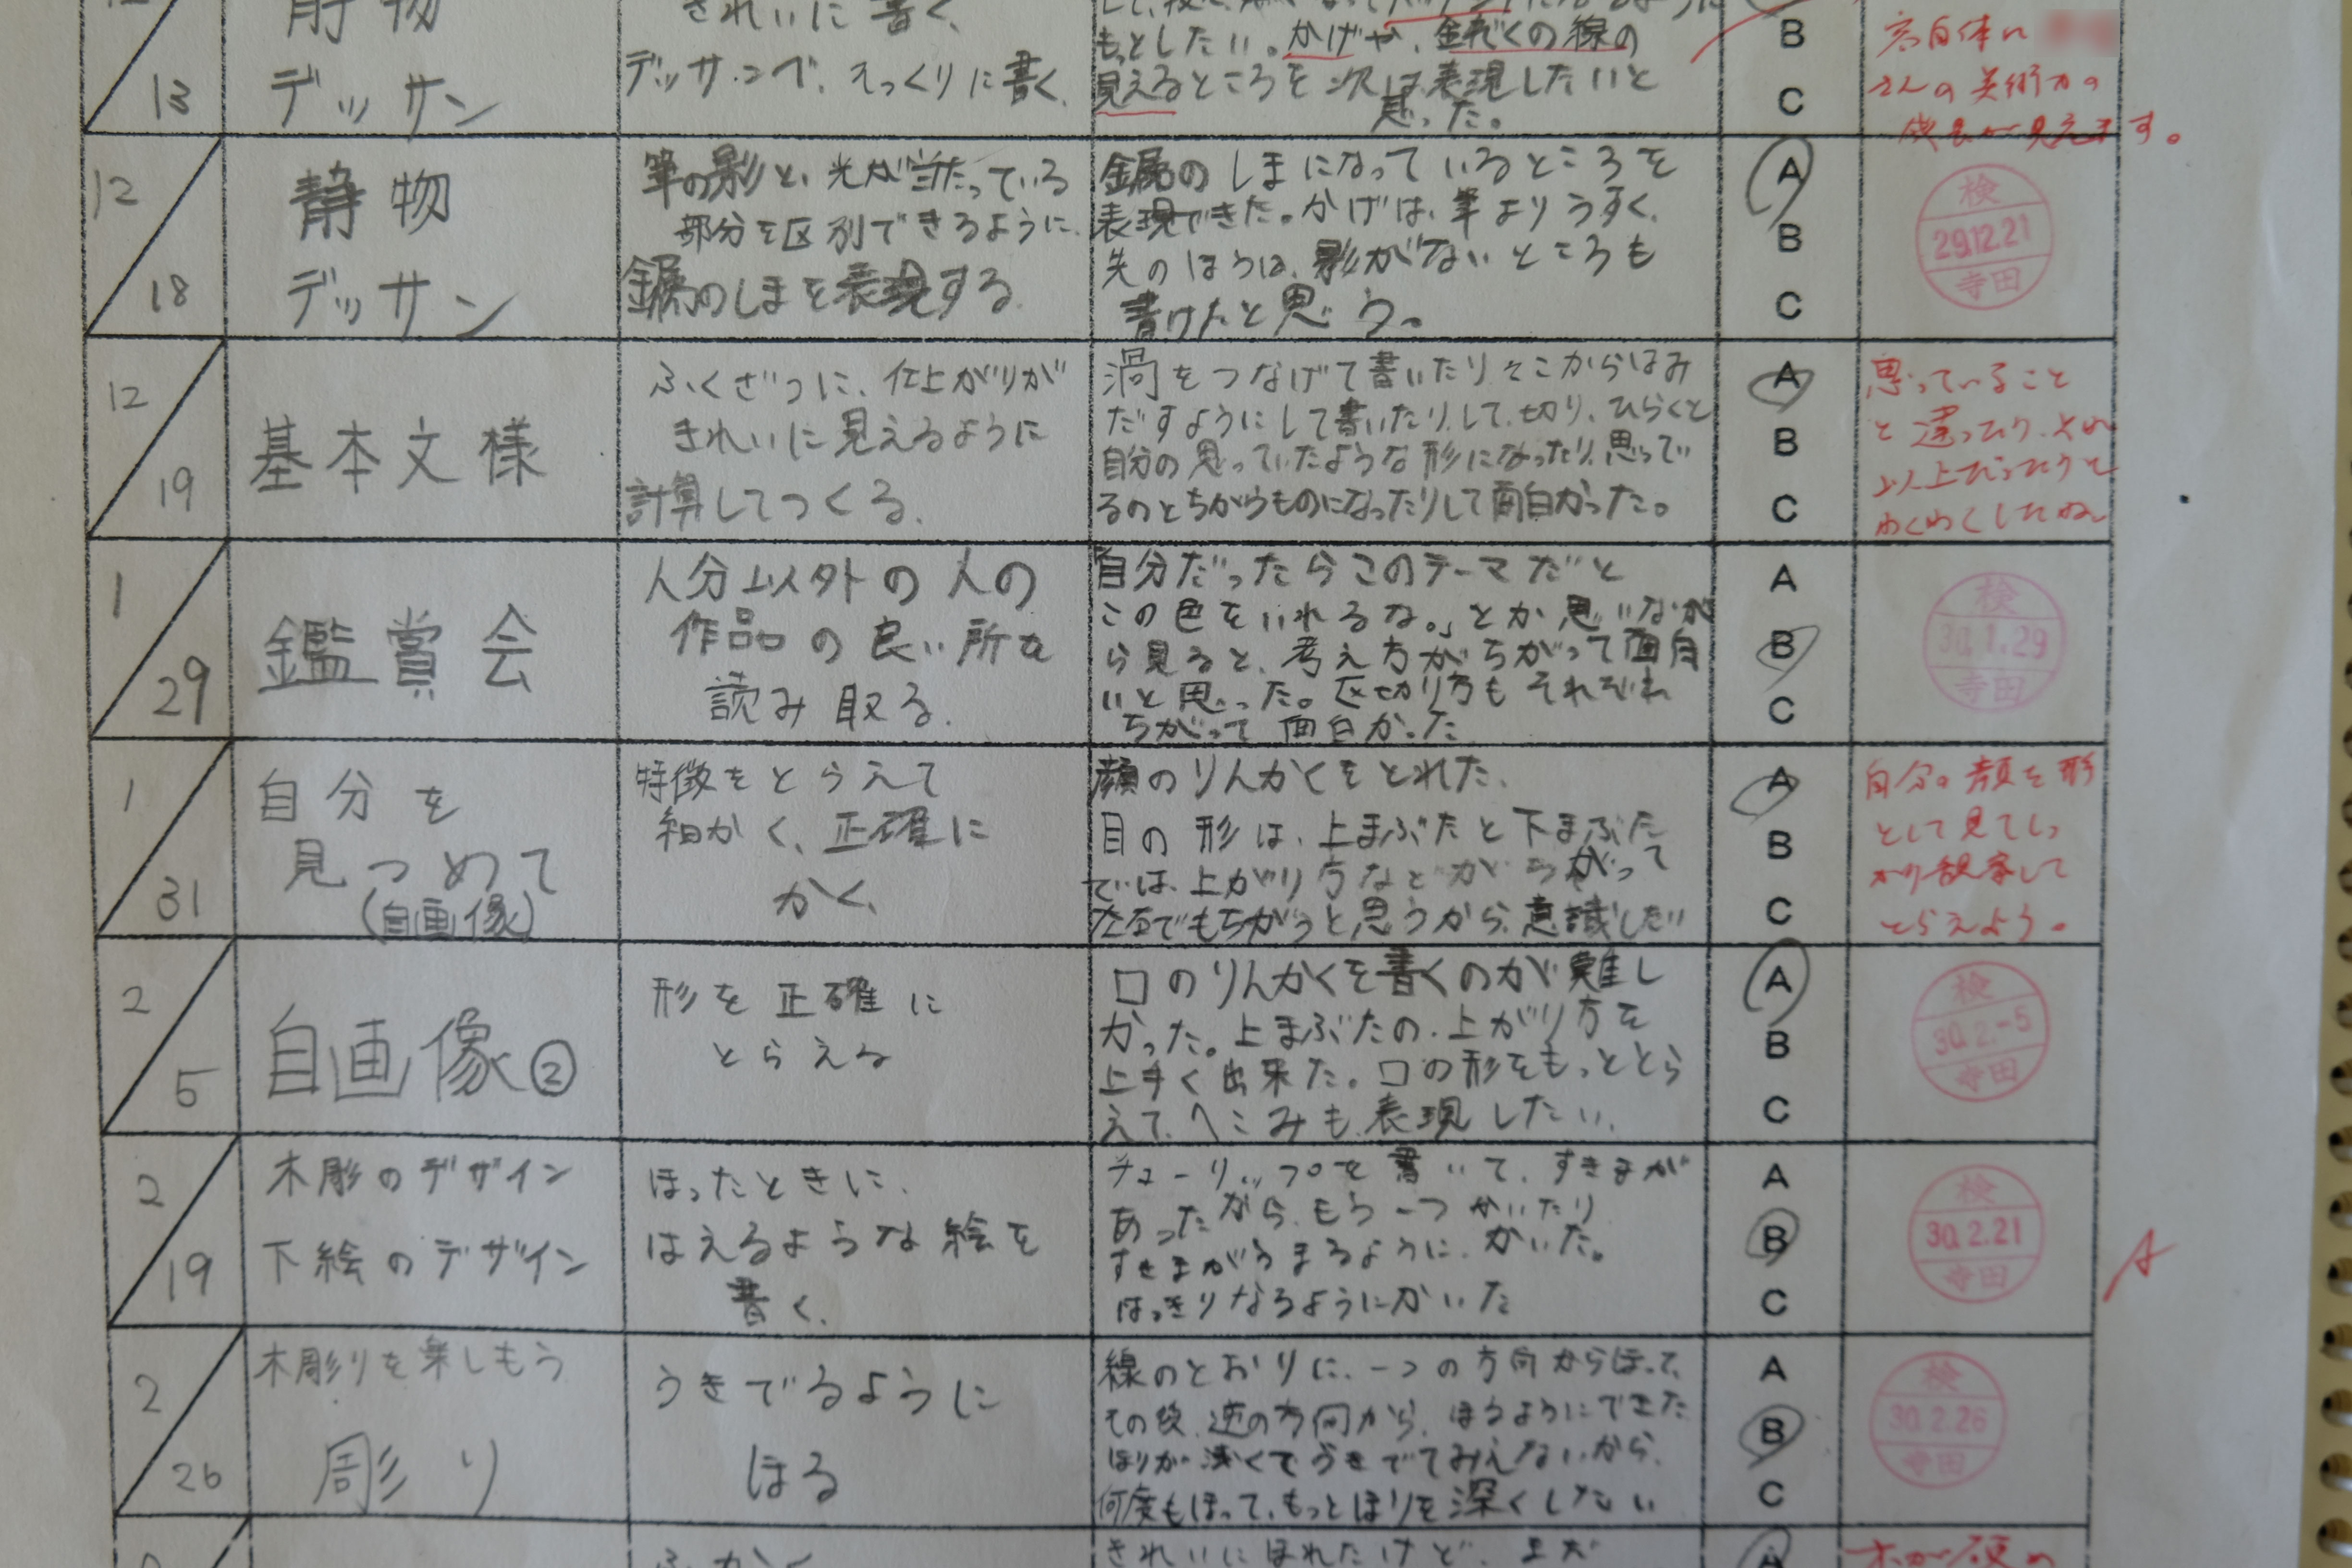 12
13
静物
デッサン
きれいに書く、
デッサンで、そっくりに書く、
もっとしたい。かげや、金ぞくの線の
見えるところを次は表現したいと
思った。
B
C
さんの美術力の
成長が見えます。
12
18
静物
デッサン
筆の影と、光が当たっている
部分を区別できるように、
金属のしまを表現する。
金属のしまになっているところを
表現できた。かげは、筆よりうすく、
先のほうは、影がないところも
書けたと思う。
A
B
C
検
29.12.21
寺田
12
19
基本文様
ふくざつに、仕上がりが
きれいに見えるように
計算してつくる。
渦をつなげて書いたりそこからはみ
だすようにして書いたりして、切り、ひらくと
自分の思っていたような形になったり、思って
るのとちがうものになったりして面白かった。
A
B
C
思っていること
と違ったり、それ
以上だったりと
わくわくしたね
1
29
鑑賞会
人分以外の人の
作品の良い所を
読み取る。
自分だったらこのテーマだと
この色をいれるな。」とか思いなが
ら見ると、考え方がちがって面白
いと思った。区切り方もそれぞれ
ちがって面白かった
A
B
C
検
30.1.29
寺田
1
31
自分を
見つめて
(自画像)
特徴をとらえて
細かく、正確に
かく、
顔のりんかくをとれた。
目の形は、上まぶたと下まぶた
では、上がり方などがちがって
左右でもちがうと思うから、意識したい
A
B
C
自分の顔を形
として見てしっ
かり観察して
とらえよう。
2
5
自画像②
形を正確に
とらえる
口のりんかくを書くのが難し
かった。上まぶたの、上がり方を
上手く出来た。口の形をもっととら
えて、へこみも表現したい。
A
B
C
検
30.2.-5
寺田
2
19
木彫のデザイン
下絵のデザイン
ほったときに、
はえるような絵を
書く、
チューリップを書いて、すきまが
あったから、もう一つかいたり
すきまがうまるように、かいた。
はっきりなるようにかいた
A
B
C
検
30.2.21
寺田
A
2
26
木彫りを楽しもう
彫り
うきでるように
ほる
線のとおりに、一つの方向からほって、
その後、逆の方向から、ほるようにできた
ほりが浅くてうきでてみえないから、
何度もほって、もっとほりを深くしたい
A
B
C
検
30.2.26
寺田
ふかく
きれいにほれたけど、まだ
A
木が硬め